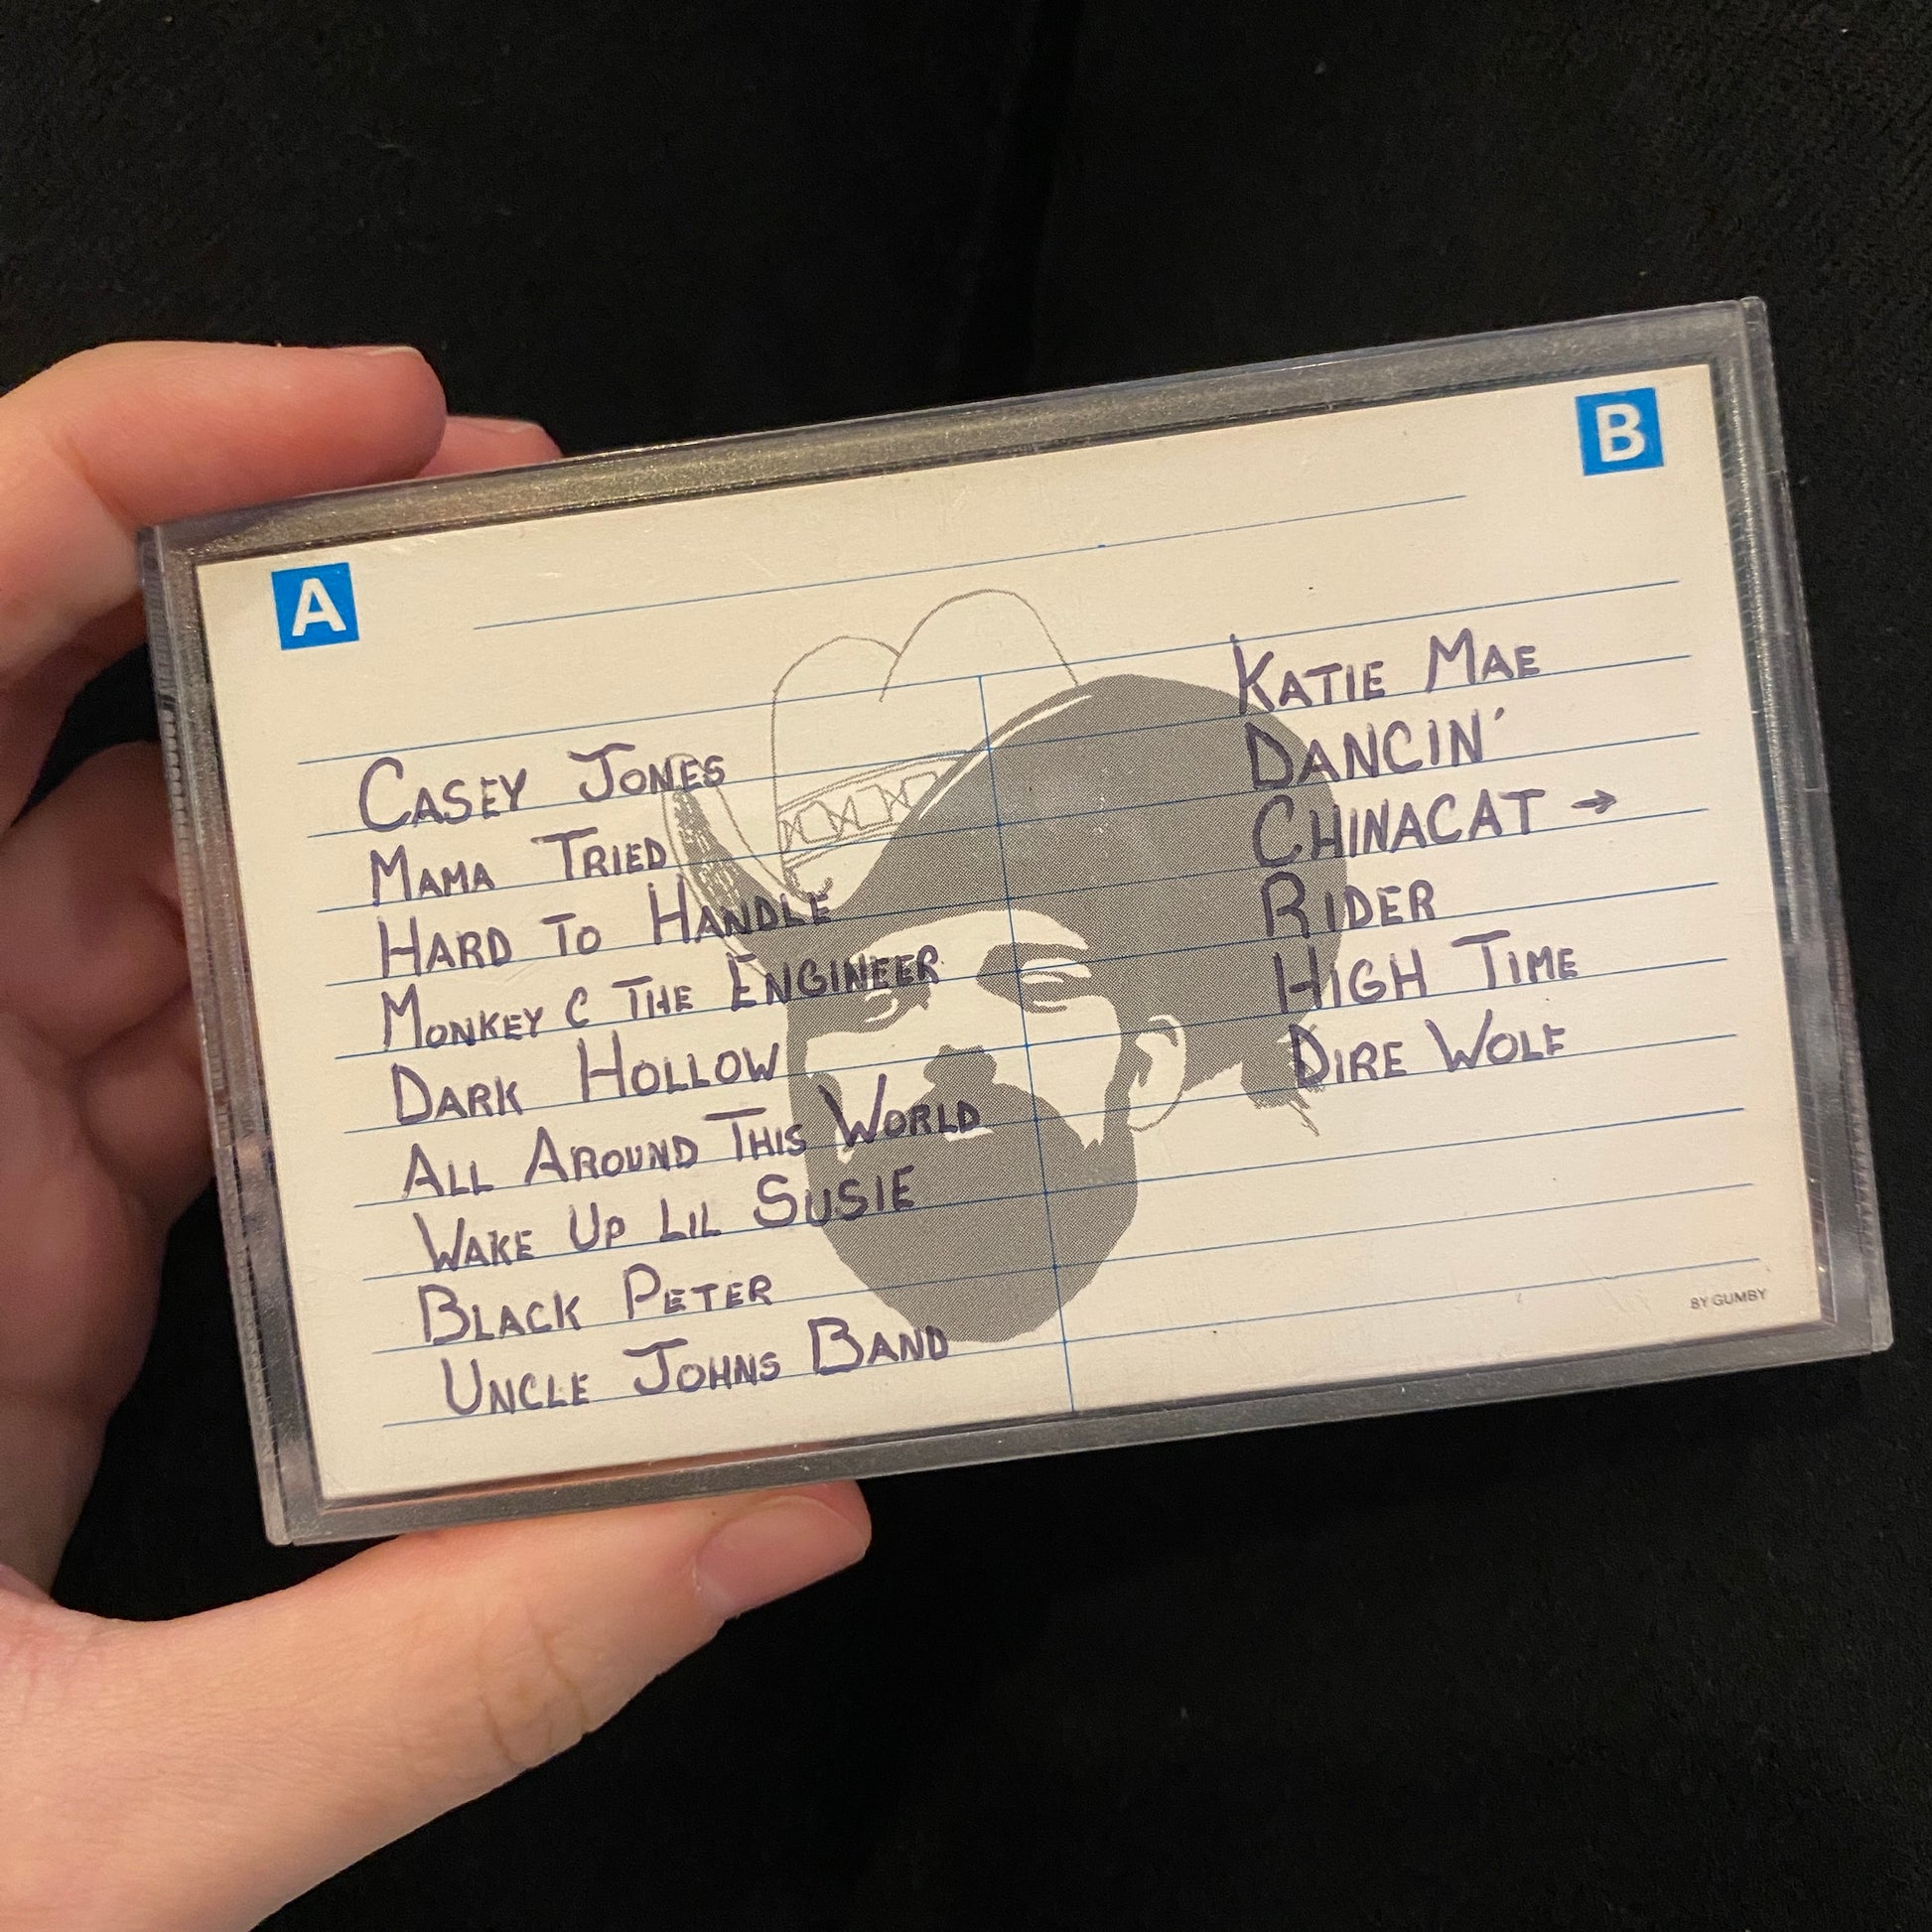 A
CASEY JONES
MAMA TRIED
HARD TO HANDLE
MONKEY & THE ENGINEER
DARK HOLLOW
ALL AROUND THIS WORLD
WAKE UP LIL SUSIE
BLACK PETER
UNCLE JOHNS BAND
B
KATIE MAE
DANCIN'
CHINACAT →
RIDER
HIGH TIME
DIRE WOLF
BY GUMBY